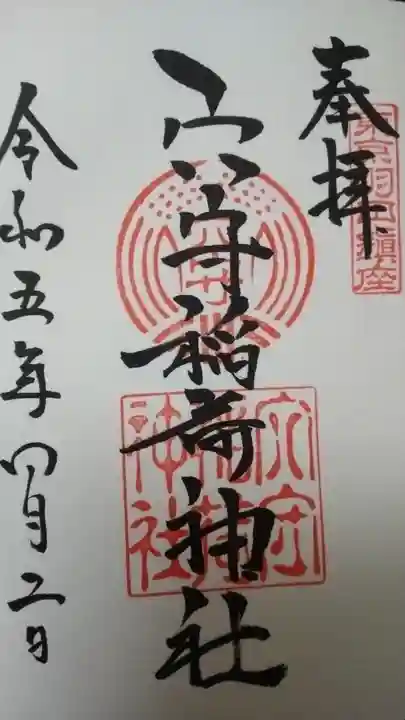 奉拝
東京羽田鎮座
穴守稲荷神社
穴守稲荷神社
令和五年四月二日